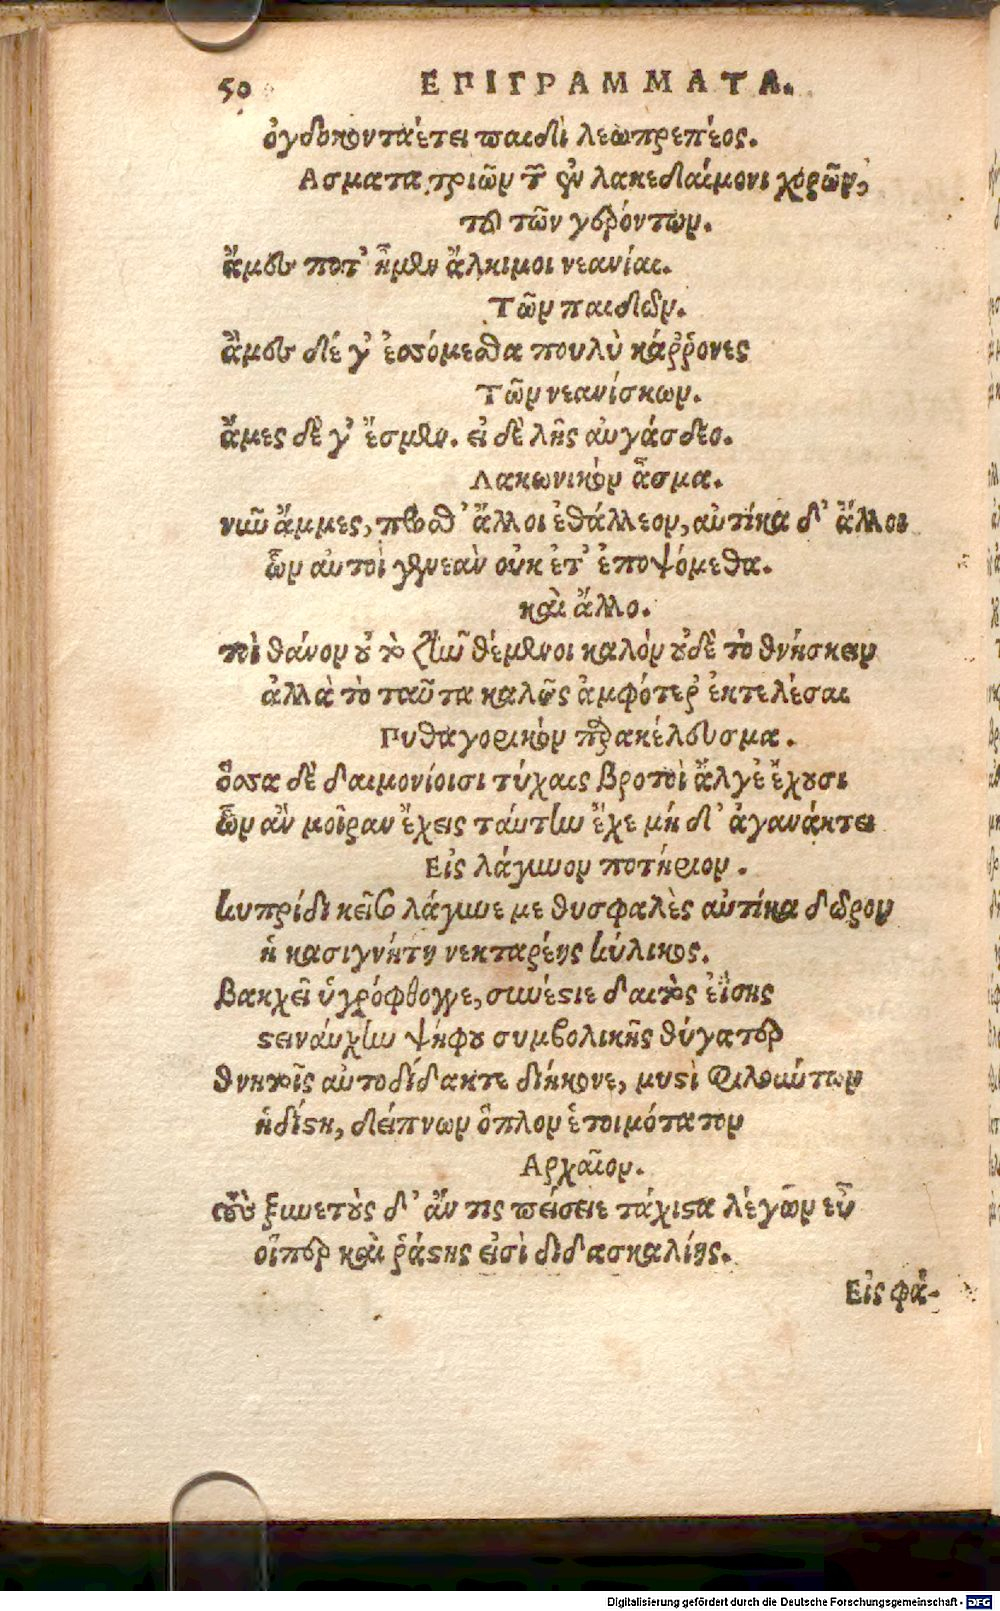 50 ΕΠΙΓΡΑΜΜΑΤΑ.
ὀγδοκονταέτει παιδὶ λεωπρεπέος.
Ασματα τριῶν τῶν ἐν λακεδαίμονι χορῶν,
τὸ τῶν γερόντων.
ἄμες ποτ' ἦμεν ἄλκιμοι νεανίαι.
Τῶν παιδῶν.
ἄμες δέ γ' ἐσσόμεσθα πουλὺ κάῤῥονες
Τῶν νεανίσκων.
ἄμες δὲ γ' ἔσμεν. εἰ δὲ λῇς αὐγάσδεο.
Λακωνικὸν ᾆσμα.
νῦν ἄμμες, πρόσθ' ἄλλοι ἐθάλλεον, αὐτίκα δ' ἄλλοι
ὧν αὐτοὶ γενεὰν οὐκ ἐτ' ἐποψόμεθα.
καὶ ἄλλο.
πὶ θάνον οὐ τὸ ζῆν θέμενοι καλὸν οὐδὲ τὸ θνήσκειν
ἀλλὰ τὸ ταῦτα καλῶς ἀμφότερ' ἐκτελέσαι
Πυθαγορικὸν παρακέλευσμα.
ὅσσα δὲ δαιμονίοισι τύχαις βροτοὶ ἄλγε' ἔχουσι
ὧν ἂν μοῖραν ἔχεις ταύτην ἔχε μή δ' ἀγανάκτει
Εἰς λάγυνον ποτήριον.
κυπρίδι κεῖσο λάγυνε με θυσφαλὲς αὐτίκα δῶρον
ἡ κασιγνήτη νεκταρέης κύλικος.
βακχεῖ ὑγρόφθογγε, συνέστιε δαιτὸς ἐΐσης
στειναύχην ψήφου συμβολικῆς θύγατερ
θνητοῖς αὐτοδίδακτε διήκονε, μυστὶ φιλούντων
ἡδίστη, δείπνων ὅπλον ἑτοιμότατον
Αρχαῖον.
τοὺς ξυνετοὺς δ' ἄν τις πείσειε τάχιστα λέγων εὖ
οἵπερ καὶ ῥάστης εἰσὶ διδασκαλίης.
Εἰς φά-
Digitalisierung gefördert durch die Deutsche Forschungsgemeinschaft - DFG